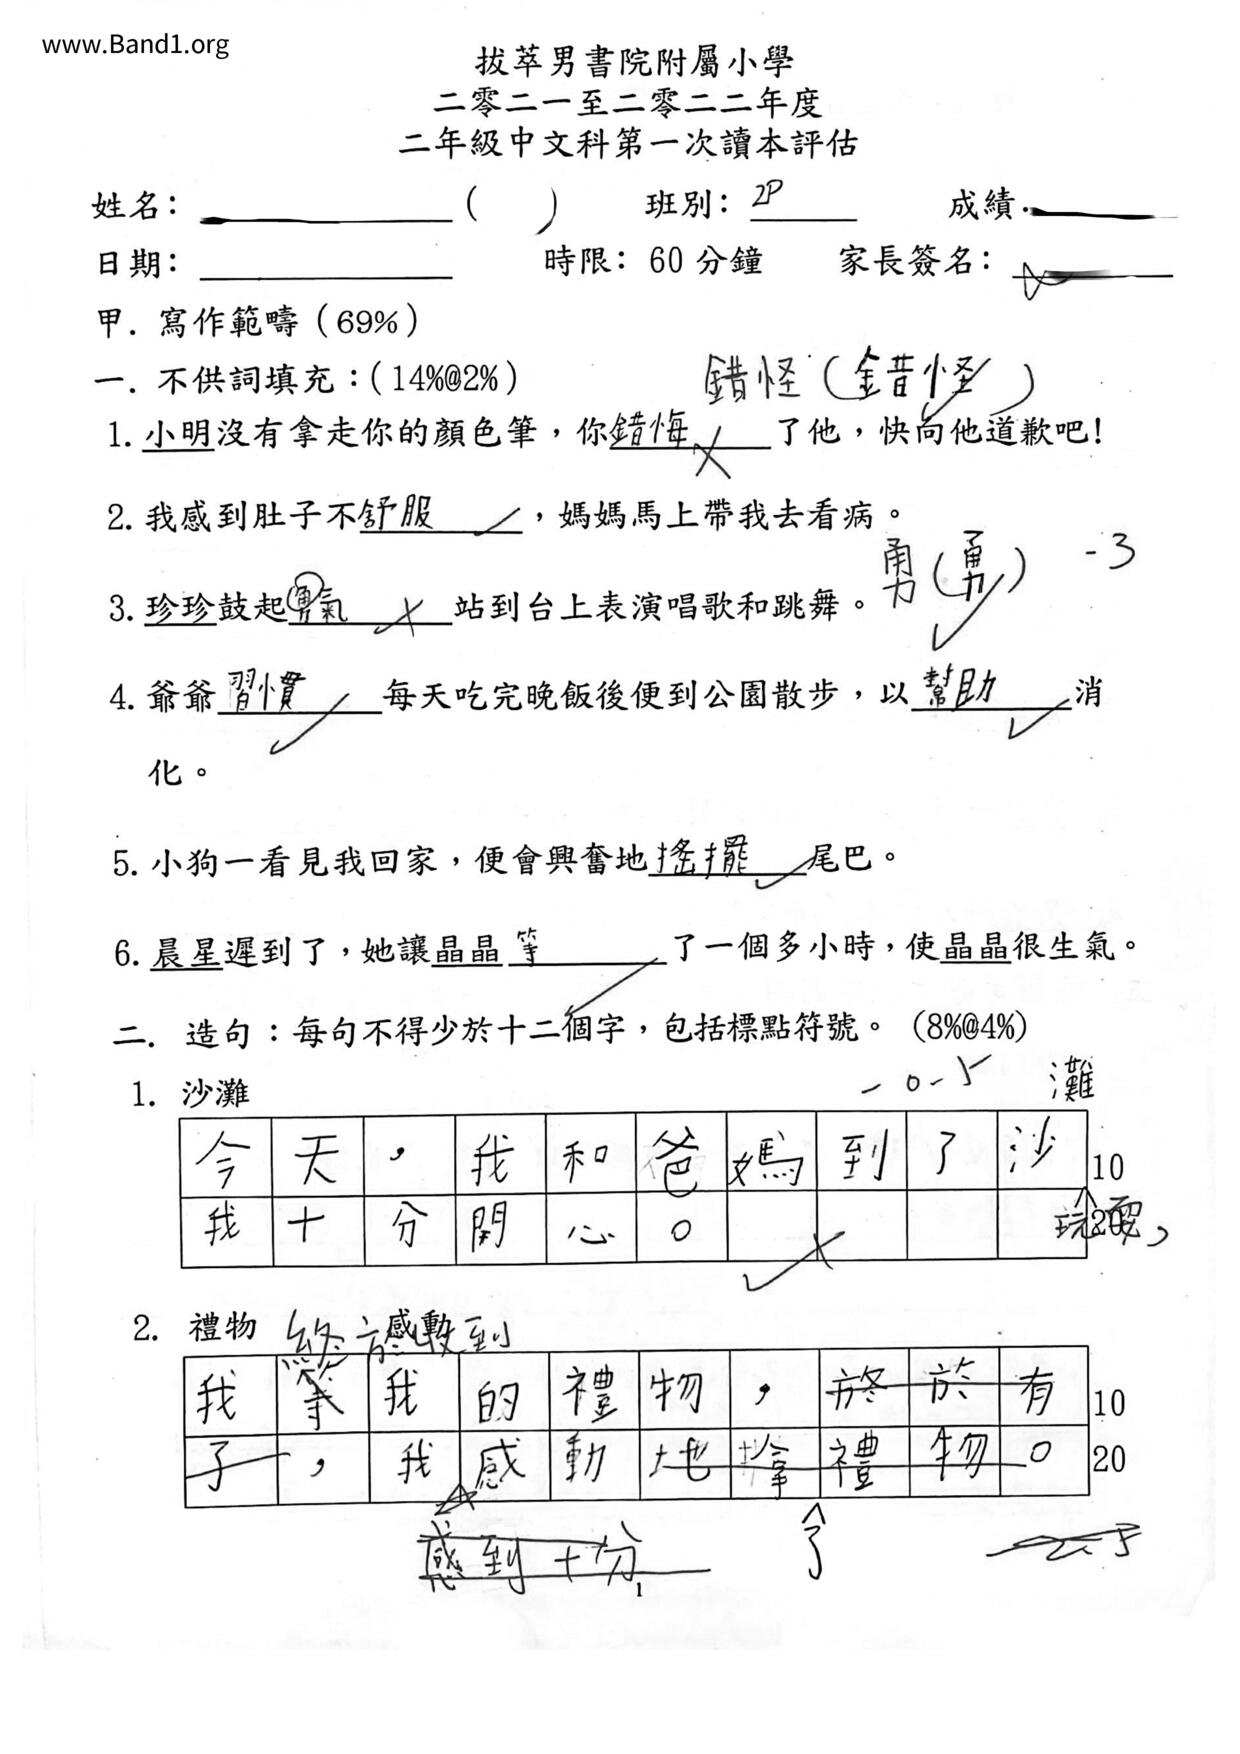 www.Band1.org
拔萃男書院附屬小學
二零二一至二零二二年度
二年級中文科第一次讀本評估
姓名：（　） 班別：2P 成績：
日期： 時限：60 分鐘 家長簽名：
甲．寫作範疇（69%）
一．不供詞填充：（14%@2%）
錯怪（錯怪）
1. 小明沒有拿走你的顏色筆，你錯悔了他，快向他道歉吧！
2. 我感到肚子不舒服，媽媽馬上帶我去看病。
勇（勇） -3
3. 珍珍鼓起勇氣站到台上表演唱歌和跳舞。
4. 爺爺習慣每天吃完晚飯後便到公園散步，以幫助消
化。
5. 小狗一看見我回家，便會興奮地搖擺尾巴。
6. 晨星遲到了，她讓晶晶等了一個多小時，使晶晶很生氣。
二．造句：每句不得少於十二個字，包括標點符號。（8%@4%）
1. 沙灘 -0.5 灘
今天，我和爸媽到了沙 10
我十分開心。 20 玩耍，
2. 禮物 終於感到
我等我的禮物，於於有 10
子，我感動地拿禮物。 20
感到十分 了
1